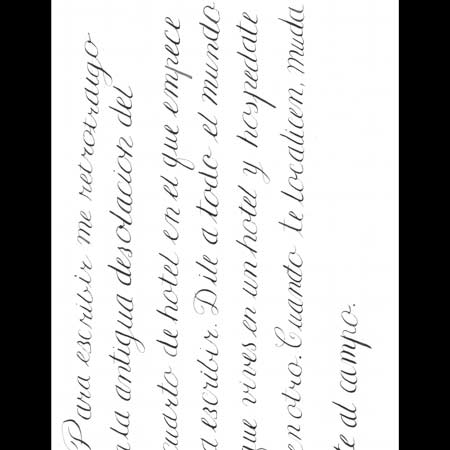 Para escribir me retrotraigo
a la antigua desolacion del
cuarto de hotel en el que empece
a escribir. Dile a todo el mundo
que vives en un hotel y hospedate
en otro. Cuando te localicen, muda
te al campo.